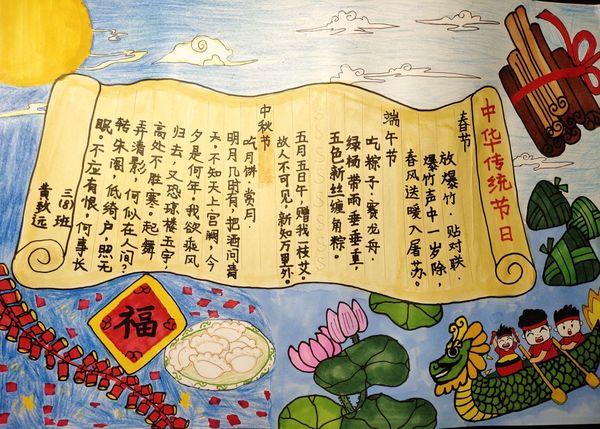 中华传统节日
春节
放爆竹.贴对联.
爆竹声中一岁除,
春风送暖入屠苏。
端午节
吃粽子.赛龙舟.
绿杨带雨垂垂重,
五色新丝缠角粽。
五月五日午,赠我一枝艾。
故人不可见,新知万里外。
中秋节
吃月饼.赏月.
明月几时有?把酒问青
天。不知天上宫阙,今
夕是何年。我欲乘风
归去,又恐琼楼玉宇,
高处不胜寒。起舞
弄清影,何似在人间?
转朱阁,低绮户,照无
眠。不应有恨,何事长
三(8)班
黄致远
福